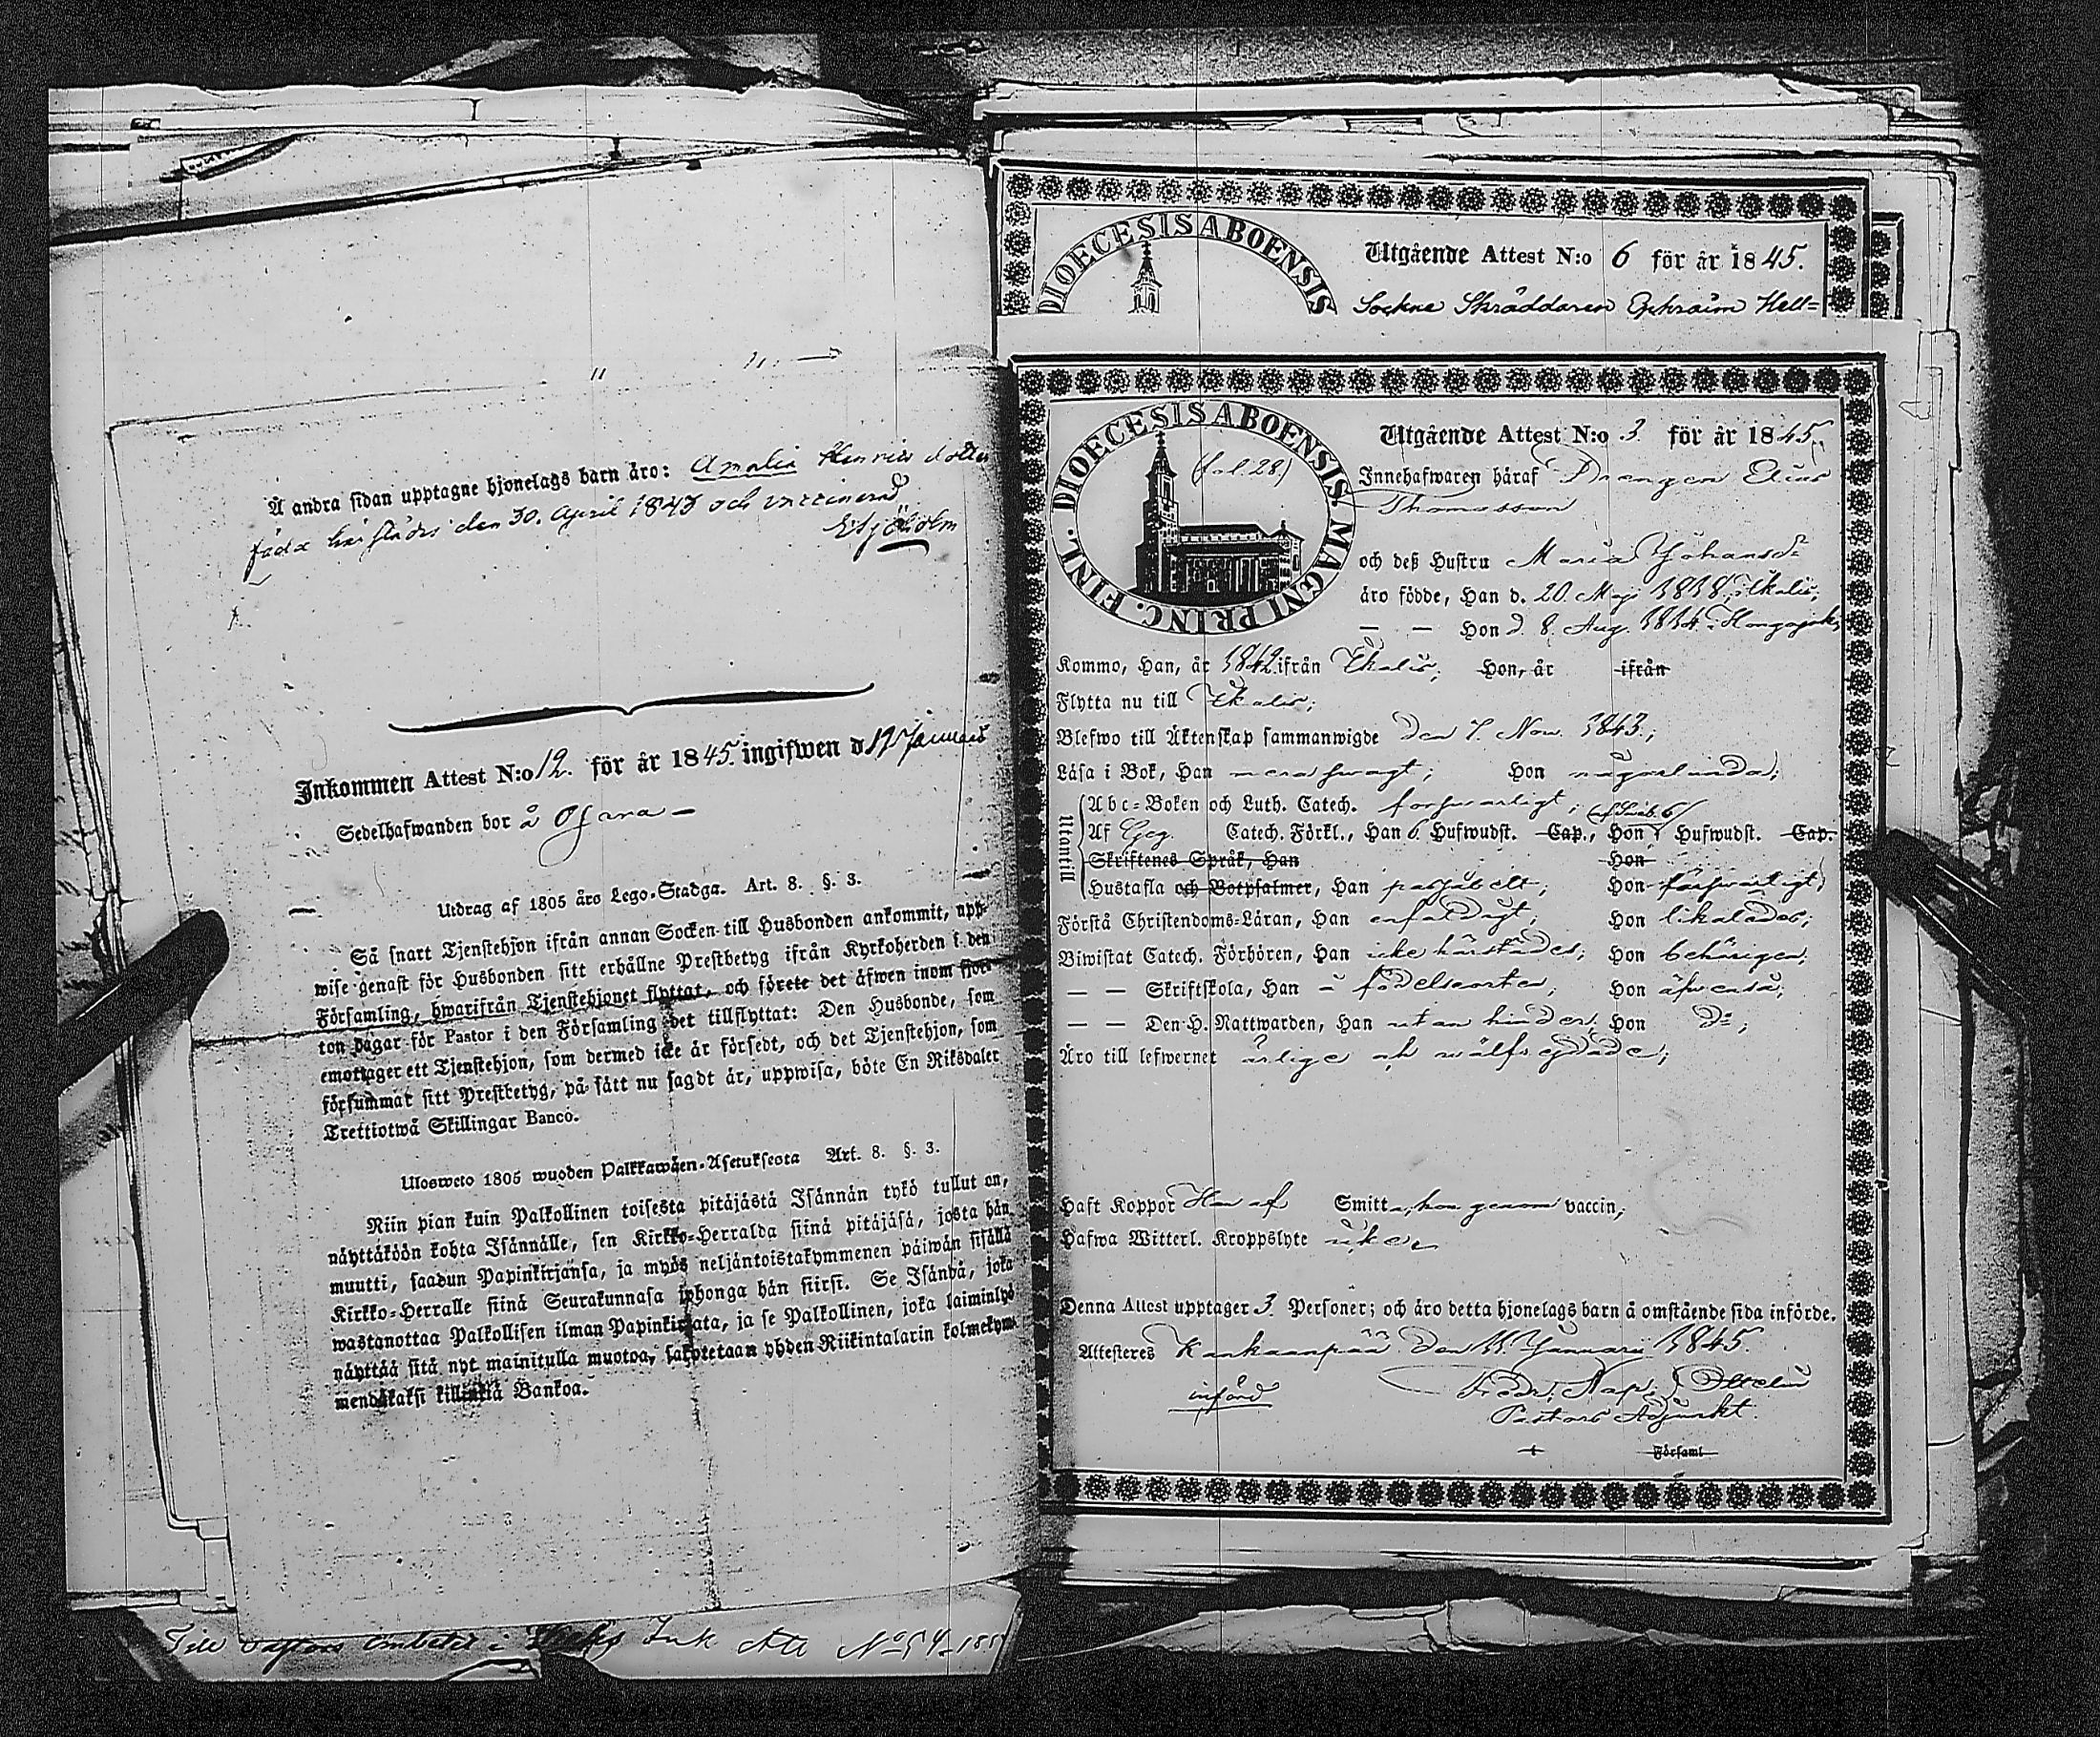 Å andra sidan upptagne hjonelags barn äro: Amalia Henricsdotter
född härstädes den 30. April 1843 och vaccinerad
Inkommen Attest N:o 12. för år 1845. ingifwen d 19 Januari
Sedelhafwanden bor å
Utdrag af 1805 års Lego-Stadga. Art. 8. §. 3.
Så snart Tjenstehjon ifrån annan Socken till Husbonden ankommit, upp-
wise genast för Husbonden sitt erhållne Prestbetyg ifrån Kyrkoherden i den
Församling, hwarifrån Tjenstehjonet flyttat, och förete det äfwen inom fjor-
ton dagar för Pastor i den Församling det tillflyttat: Den Husbonde, som
emottager ett Tjenstehjon, som dermed icke är försedt, och det Tjenstehjon, som
försummar sitt Prestbetyg, på sätt nu sagdt är, uppwisa, böte En Riksdaler
Trettiotwå Skillingar Banco.
Ulosweto 1805 wuoden Palkkawäen-Asetuksesta Art. 8. §. 3.
Niin pian kuin Palkollinen toisesta pitäjästä Isännän tykö tullut on,
näyttäköön kohta Isännälle, sen Kirkko-Herralda siinä pitäjäsä, josta hän
muutti, saadun Papinkirjansa, ja myös neljäntoistakymmenen päiwän sisällä
Kirkko-Herralle siinä Seurakunnasa johonga hän siirsi. Se Isändä, joka
wastanottaa Palkollisen ilman Papinkirjata, ja se Palkollinen, joka laiminlyö
näyttää sitä nyt mainitulla muotoa, sakotetaan yhden Riikintalarin kolmekym-
mendäkaksi killinkiä Bankoa.
Till Pastors Embetet i
DIOECESIS ABOENSIS
Utgående Attest N:o 6 för år 1845.
Sockne Skräddaren Ephraim Hell=
DIOECESIS ABOENSIS. MAGNI PRINC. FINL.
(fol. 28)
Utgående Attest N:o 3. för år 1845.
Innehafwaren häraf Drengen Elias
Thomasson
och deß Hustru Maria Johansd:r
äro födde, Han d. 20 Maji 1818, i Ikalis,
— — Hon d. 8. Aug. 1814
Kommo, Han, år 1842 ifrån Ikalis; Hon, år ifrån
Flytta nu till Ikalis;
Blefwo till Äktenskap sammanwigde den 7. Nov. 1843.;
Läsa i Bok, Han swagt; Hon någorlunda;
Utantill
Abc-Boken och Luth. Catech. forswarligt;
Af Catech. Förkl., Han 6 Hufwudst. Cap., Hon Hufwudst. Cap.
Skriftenes Språk, Han Hon
Hustafla och Botpsalmer, Han Hon forswarligt;
Förstå Christendoms-Läran, Han enfaldigt; Hon likaledes;
Biwistat Catech. Förhören, Han icke härstädes; Hon behörigen;
— — Skriftskola, Han å födelseorten; Hon äfwenså;
— — Den H. Nattwarden, Han utan hinder, Hon D:o;
Äro till lefwernet ärlige och wälfrejdade;
Haft Koppor Han af Smitta, hon genom vaccin;
Hafwa Witterl. Kroppslyte
Denna Attest upptager 3. Personer; och äro detta hjonelags barn å omstående sida införde.
Attesteres Kankaanpää den 11. Januarii 1845.
införd
Pastors Adjunkt.
Församl